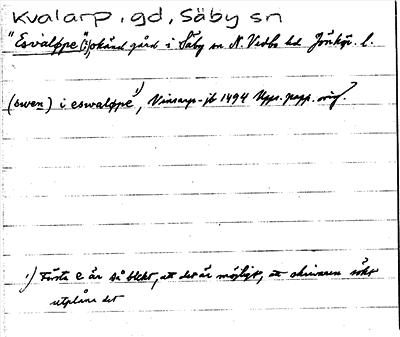 Kvalarp, gd, Säby sn
"Esvaløpe" (:) okänd gård i Säby sn N. Vedbo hd Jönköp. l.
(swen) i eswaløpe 1), Vinsarp-jb 1494 Upps. papp. orig.
1) Första e är så blekt, att det är möjligt, att skrivaren sökt
utplåna det